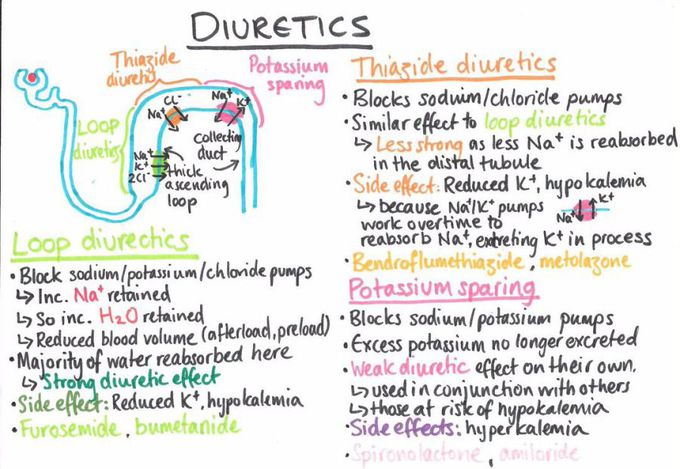 DIURETICS
Thiazide
diuretiq
Potassium
sparing
LOOP
diuretics
Cl-
Na+
Na+
K+
Na+
K+
2Cl-
Collecting
duct
thick
ascending
loop
Loop diurectics
• Block sodium/potassium/chloride pumps
↳ Inc. Na+ retained
↳ So inc. H2O retained
↳ Reduced blood volume (afterload, preload)
• Majority of water reabsorbed here
↳ Strong diuretic effect
• Side effect: Reduced K+, hypokalemia
• Furosemide, bumetanide
Thiazide diuretics
• Blocks sodium/chloride pumps
• Similar effect to loop diuretics
↳ Less strong as less Na+ is reabsorbed
in the distal tubule
• Side effect: Reduced K+, hypokalemia
↳ because Na+/K+ pumps
work overtime to
reabsorb Na+, extreting K+ in process
Na+
K+
• Bendroflumethiazide, metolazone
Potassium sparing
• Blocks sodium/potassium pumps
• Excess potassium no longer excreted
• Weak diuretic effect on their own.
↳ used in conjunction with others
↳ those at risk of hypokalemia
• Side effects: hyperkalemia
• Spironolactone, amiloride